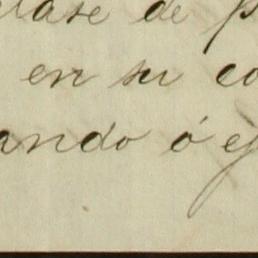 clase de p
en su co
ando ó ej